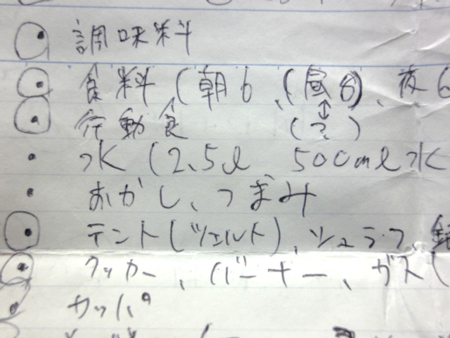 調味料
食料(朝6、(昼6)、夜6
行動食 (?)
水(2.5l 500ml水
おかし、つまみ
テント(ツェルト)、シュラフ、
クッカー、バーナー、ガス(
カッパ